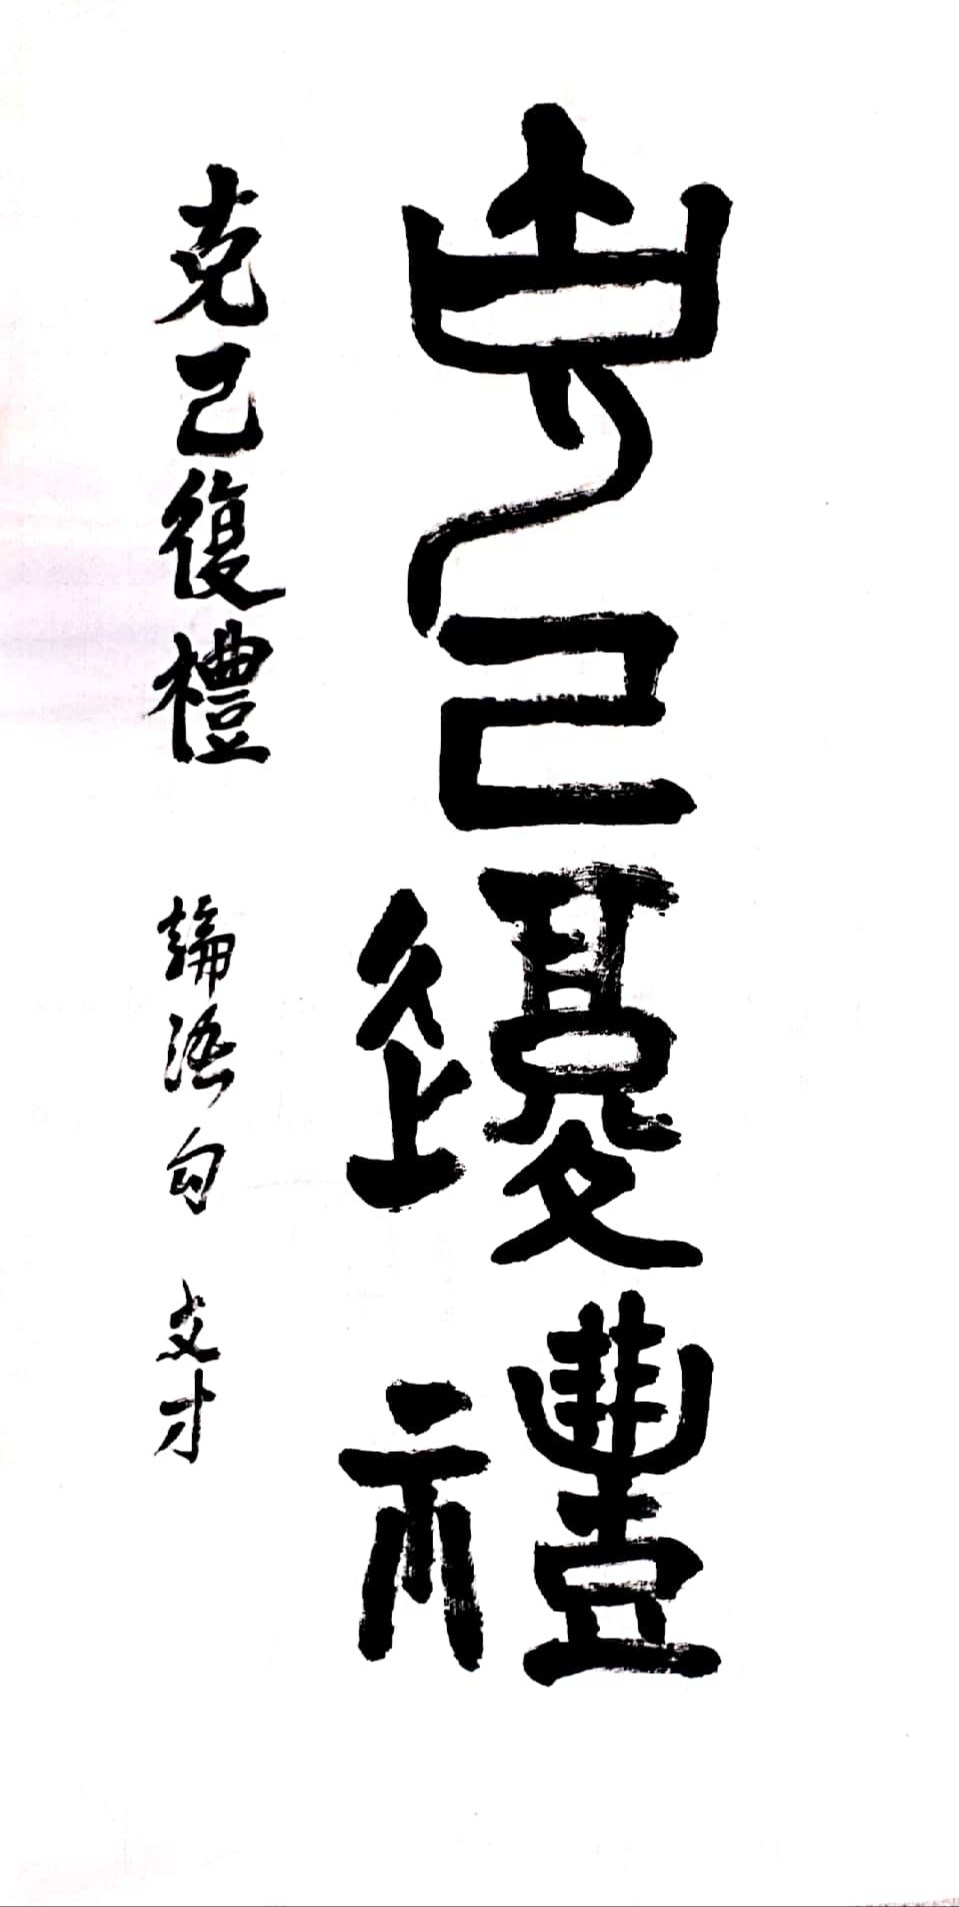 克己復禮
克己復禮 論語句 文才